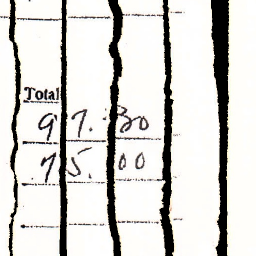 Total
97.30
75.00